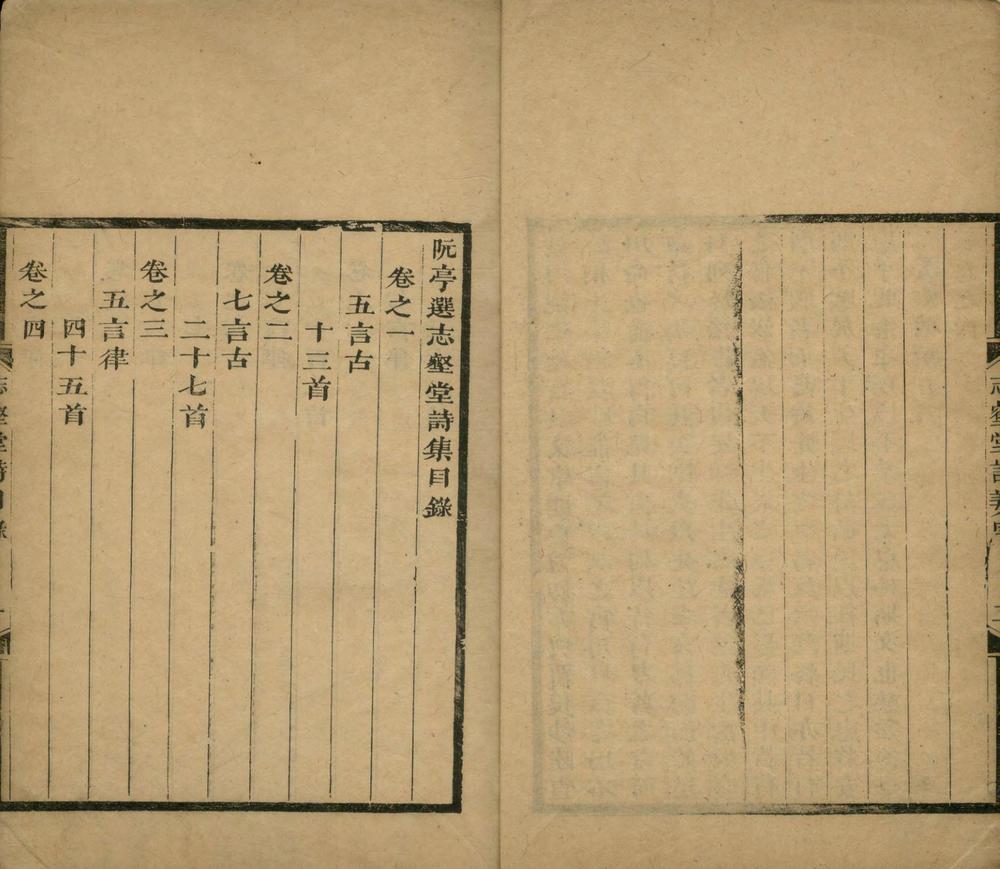 阮亭選志壑堂詩集目錄
卷之一
五言古
十三首
卷之二
七言古
二十七首
卷之三
五言律
四十五首
卷之四
志壑堂詩目錄
志壑堂詩